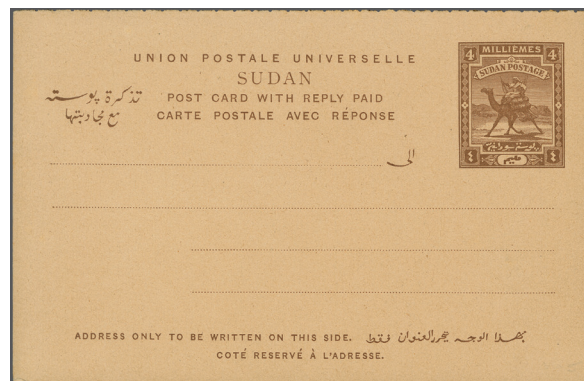 UNION POSTALE UNIVERSELLE
SUDAN
POST CARD WITH REPLY PAID
CARTE POSTALE AVEC RÉPONSE
تذكرة پوسته
مع مجاوبتها
4 MILLIÈMES 4
SUDAN POSTAGE
٤ مليم ٤
الى
ADDRESS ONLY TO BE WRITTEN ON THIS SIDE. بهذا الوجه يحرر العنوان فقط
COTÉ RESERVÉ À L'ADRESSE.